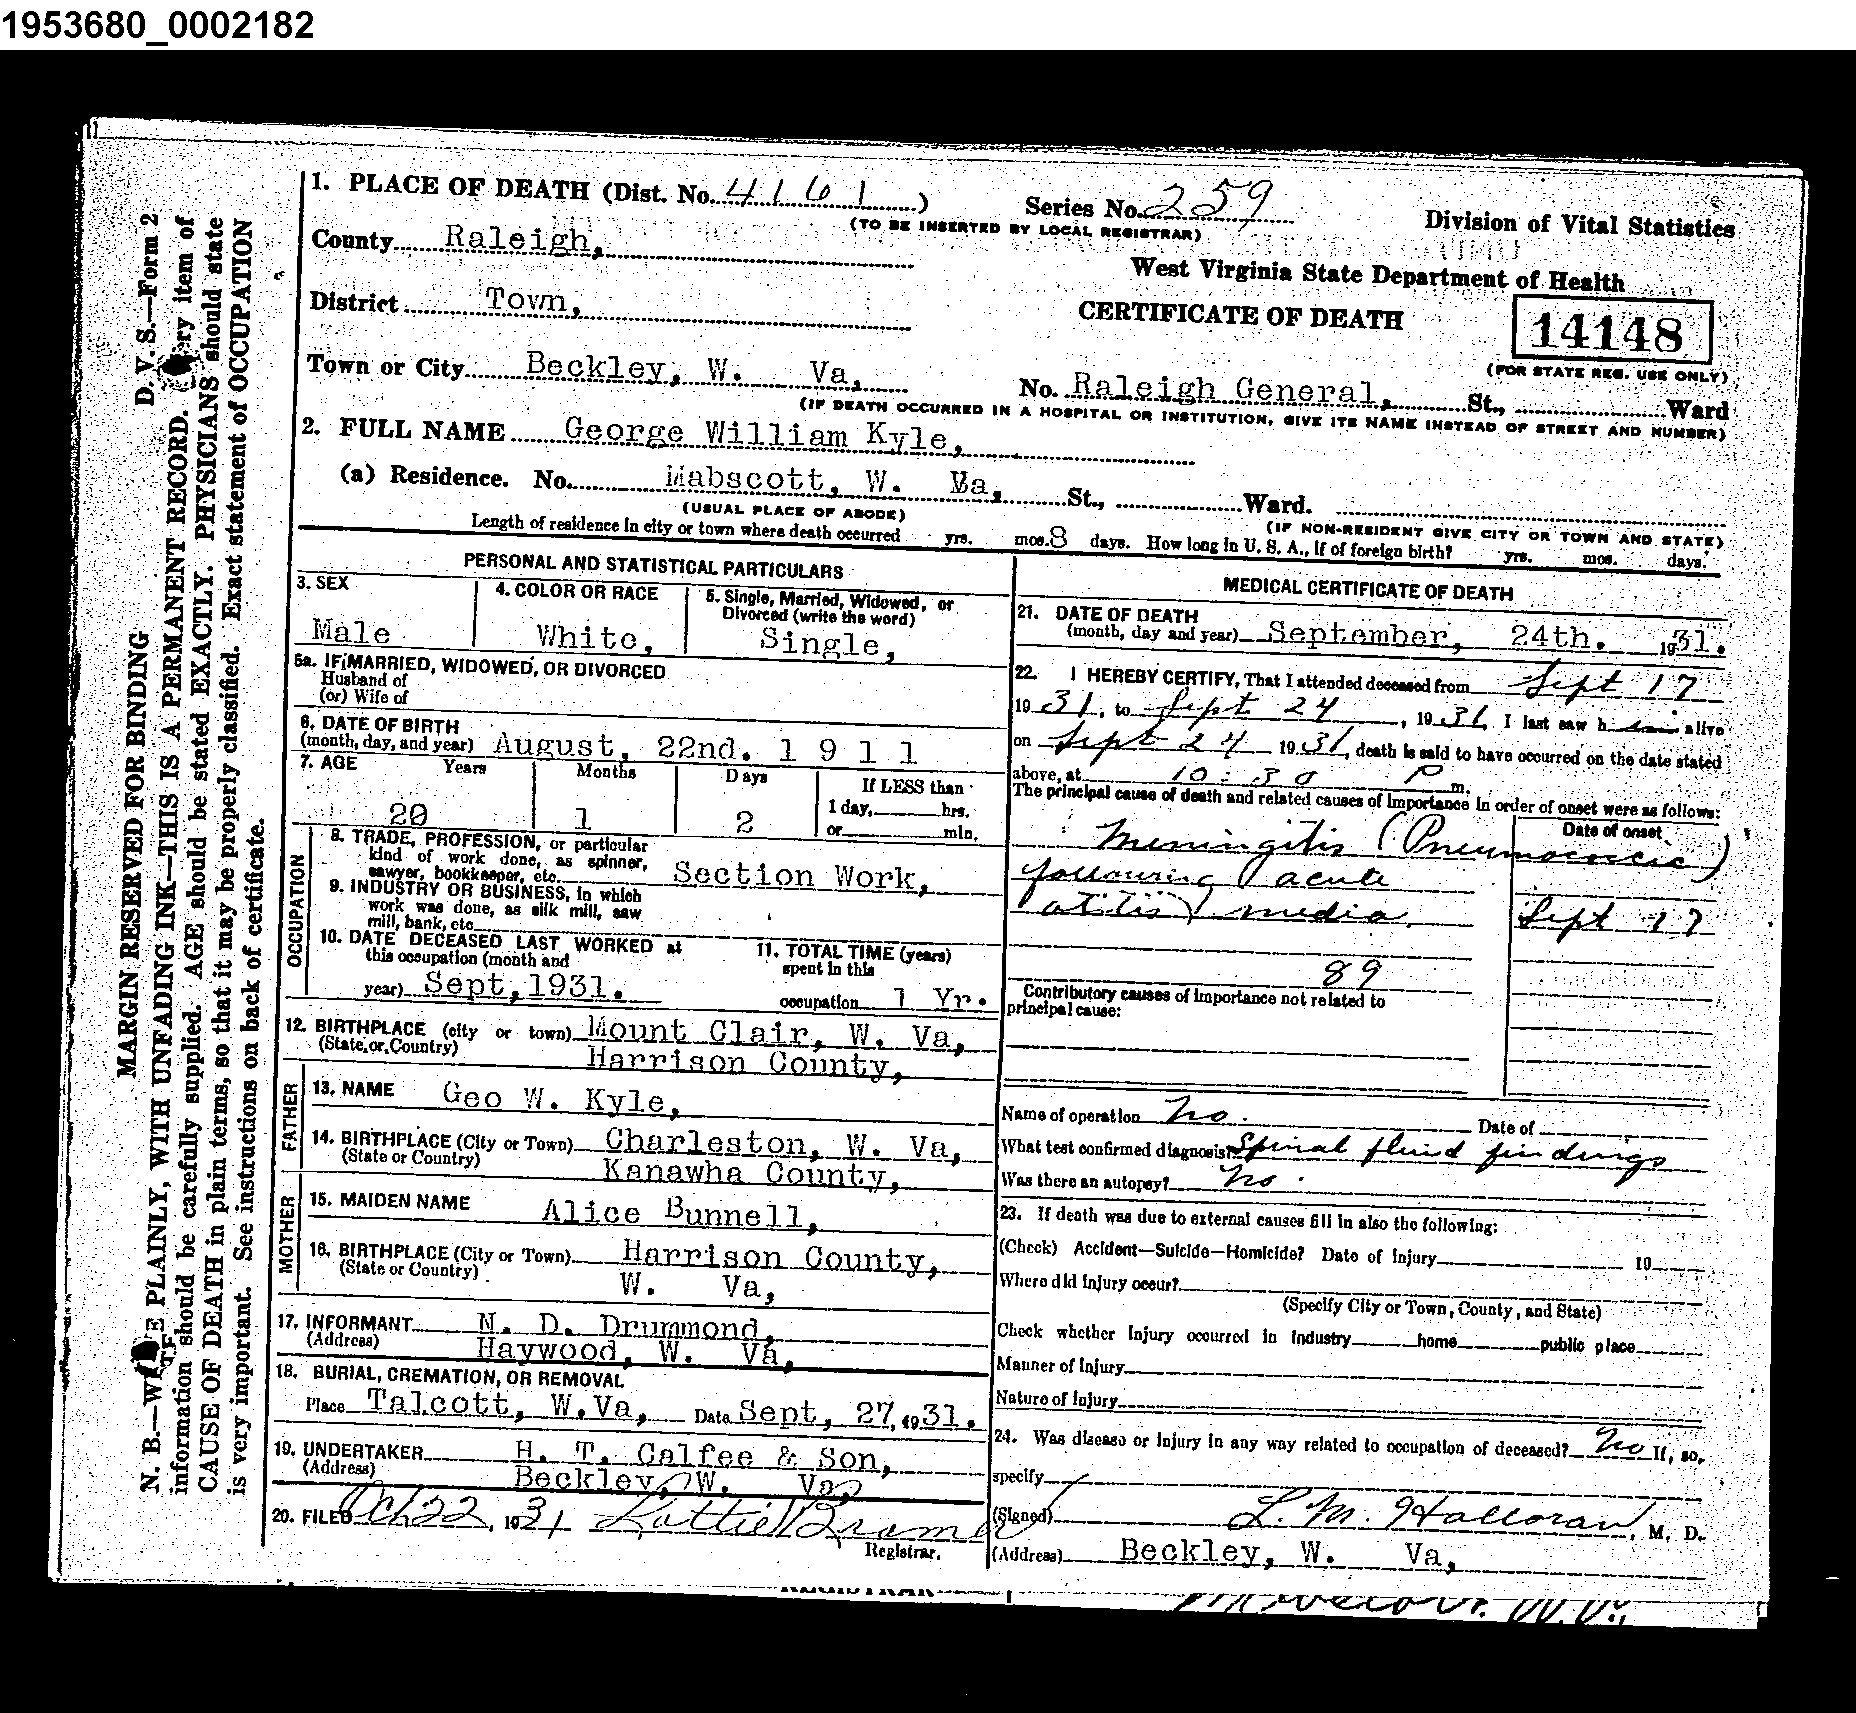 1953680_0002182
MARGIN RESERVED FOR BINDING
D. V. S.—Form 2
N. B.—WRITE PLAINLY, WITH UNFADING INK—THIS IS A PERMANENT RECORD. Every item of
information should be carefully supplied. AGE should be stated EXACTLY. PHYSICIANS should state
CAUSE OF DEATH in plain terms, so that it may be properly classified. Exact statement of OCCUPATION
is very important. See instructions on back of certificate.
1. PLACE OF DEATH (Dist. No. 4161)
Series No. 259
(TO BE INSERTED BY LOCAL REGISTRAR)
Division of Vital Statistics
County Raleigh,
West Virginia State Department of Health
District Town,
CERTIFICATE OF DEATH
14148
(FOR STATE REG. USE ONLY)
Town or City Beckley, W. Va,
No. Raleigh General, St., Ward
(IF DEATH OCCURRED IN A HOSPITAL OR INSTITUTION, GIVE ITS NAME INSTEAD OF STREET AND NUMBER)
2. FULL NAME George William Kyle,
(a) Residence. No. Mabscott, W. Va, St., Ward.
(USUAL PLACE OF ABODE)
(IF NON-RESIDENT GIVE CITY OR TOWN AND STATE)
Length of residence in city or town where death occurred yrs. mos. 8 days. How long in U. S. A., if of foreign birth? yrs. mos. days.
PERSONAL AND STATISTICAL PARTICULARS
3. SEX
Male
4. COLOR OR RACE
White,
5. Single, Married, Widowed, or
Divorced (write the word)
Single,
5a. IF MARRIED, WIDOWED, OR DIVORCED
Husband of
(or) Wife of
6. DATE OF BIRTH
(month, day, and year) August, 22nd. 1911
7. AGE Years Months Days If LESS than
1 day, hrs.
20 1 2 or min.
OCCUPATION
8. TRADE, PROFESSION, or particular
kind of work done, as spinner,
sawyer, bookkeeper, etc. Section Work,
9. INDUSTRY OR BUSINESS, in which
work was done, as silk mill, saw
mill, bank, etc
10. DATE DECEASED LAST WORKED at
this occupation (month and
year) Sept, 1931.
11. TOTAL TIME (years)
spent in this
occupation 1 Yr.
12. BIRTHPLACE (city or town) Mount Clair, W. Va,
(State or Country) Harrison County,
FATHER
13. NAME Geo W. Kyle,
14. BIRTHPLACE (City or Town) Charleston, W. Va,
(State or Country) Kanawha County,
MOTHER
15. MAIDEN NAME Alice Bunnell,
16. BIRTHPLACE (City or Town) Harrison County,
(State or Country) W. Va,
17. INFORMANT N. D. Drummond,
(Address) Haywood, W. Va,
18. BURIAL, CREMATION, OR REMOVAL
Place Talcott, W.Va, Date Sept, 27, 1931.
19. UNDERTAKER H. T. Calfee & Son,
(Address) Beckley, W. Va,
20. FILED Oct 22, 1931 Lottie Bramer
Registrar.
MEDICAL CERTIFICATE OF DEATH
21. DATE OF DEATH
(month, day and year) September, 24th. 1931.
22. I HEREBY CERTIFY, That I attended deceased from Sept 17
1931, to Sept 24, 1931, I last saw him alive
on Sept 24 1931, death is said to have occurred on the date stated
above, at 10:30 P m.
The principal cause of death and related causes of importance in order of onset were as follows:
Date of onset
Meningitis (Pneumococcic)
following acute
otitis media. Sept 17
89
Contributory causes of importance not related to
principal cause:
Name of operation No. Date of
What test confirmed diagnosis? Spinal fluid findings
Was there an autopsy? No.
23. If death was due to external causes fill in also the following:
(Check) Accident—Suicide—Homicide? Date of Injury 19
Where did injury occur?
(Specify City or Town, County, and State)
Check whether injury occurred in industry home public place
Manner of injury
Nature of injury
24. Was disease or injury in any way related to occupation of deceased? No If, so,
specify
(Signed) L. M. Halloran, M. D.
(Address) Beckley, W. Va,